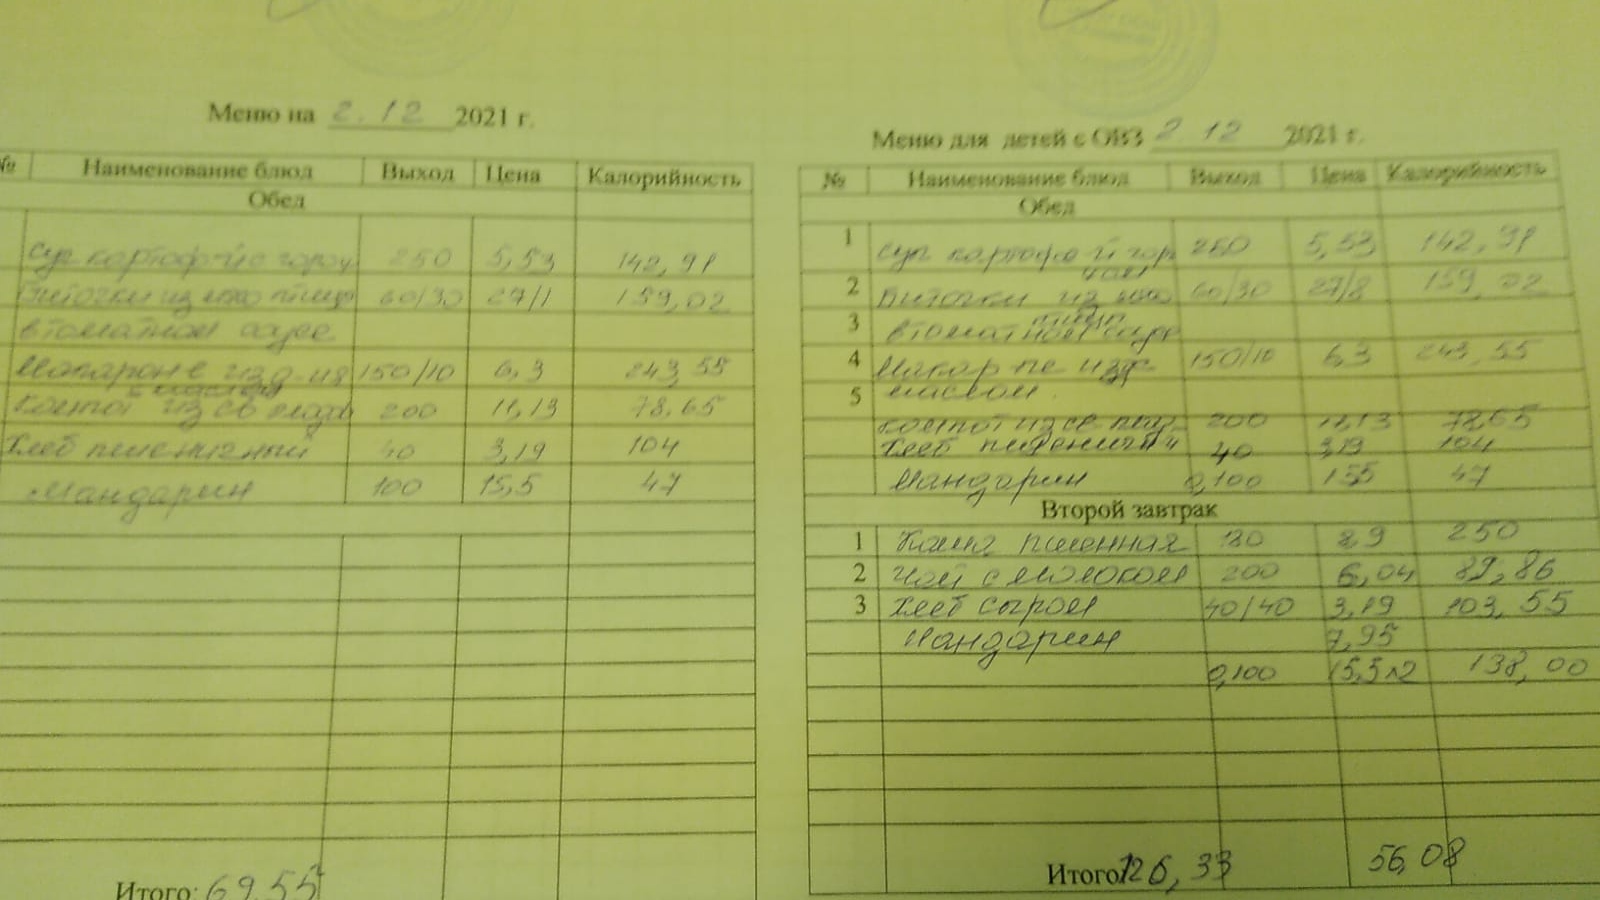 Меню на 2.12 2021 г.
№ Наименование блюд Выход Цена Калорийность
Обед
Суп картоф-й с горох 250 5,53 142,91
Биточки из мяс птицы 60/30 27/1 159,02
в томатном соусе
Макарон е изд-ия 150/10 6,3 243,55
с маслом
Компот из св плодов 200 11,13 78,65
Хлеб пшеничный 40 3,19 104
Мандарин 100 15,5 47
Итого: 69,55
Меню для детей с ОВЗ 2 12 2021 г.
№ Наименование блюд Выход Цена Калорийность
Обед
1 Суп картофе й гор 250 5,53 142,91
2 Биточки из 60/30 27/8 159,02
птиц
3 в томатном соусе
4 Макар не изд 150/10 6,3 243,55
5 маслом
Компот из св плод 200 11,13 78,65
Хлеб пшеничный 40 3,19 104
Мандарин 0,100 155 47
Второй завтрак
1 Каша пшенная 180 89 250
2 Чай с молоком 200 6,04 89,86
3 Хлеб сыром 40/40 3,19 103,55
Мандарин 7,95
0,100 15,5 138,00
Итого 126,33 56,08